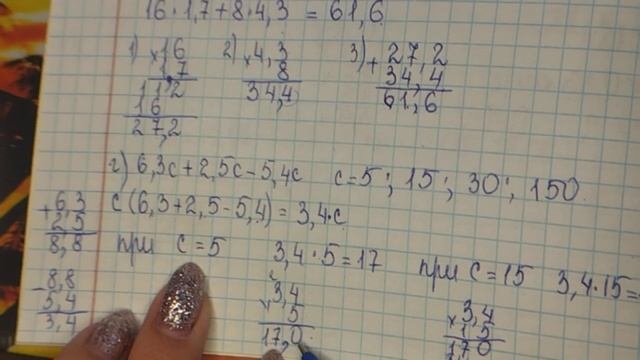 16·1,7+8·4,3 = 61,6
1) ×16
1,7
112
16
27,2
2) ×4,3
8
34,4
3) +27,2
34,4
61,6
г) 6,3с+2,5с-5,4с с=5; 15; 30; 150
с(6,3+2,5-5,4)=3,4·с
+6,3
2,5
8,8
-8,8
5,4
3,4
при с=5 3,4·5=17
×3,4
5
17,0
при с=15 3,4·15=
×3,4
15
170